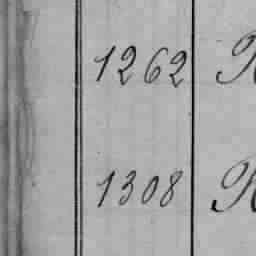 1262 R
1308 R